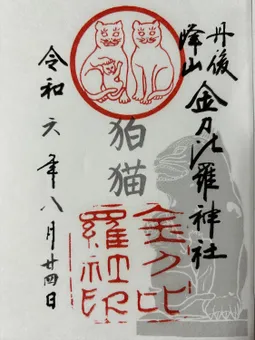 丹後
峰山
金刀比羅神社
狛猫
金刀比
羅社印
令和六年八月廿四日